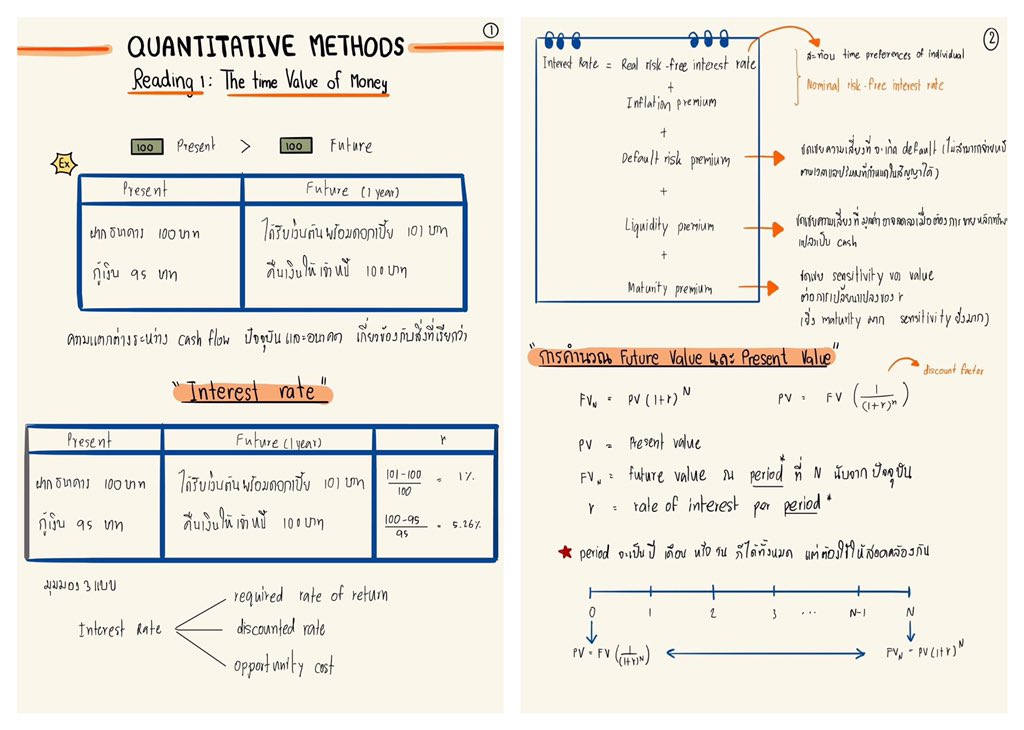 ①
QUANTITATIVE METHODS
Reading 1: The time Value of Money
100 Present > 100 Future
Ex
Present Future (1 year)
ฝากธนาคาร 100 บาท ได้รับเงินต้นพร้อมดอกเบี้ย 101 บาท
กู้เงิน 95 บาท คืนเงินให้เจ้าหนี้ 100 บาท
ความแตกต่างระหว่าง cash flow ปัจจุบันและอนาคต เกี่ยวข้องกับสิ่งที่เรียกว่า
"Interest rate"
Present Future (1 year) r
ฝากธนาคาร 100 บาท ได้รับเงินต้นพร้อมดอกเบี้ย 101 บาท 101-100/100 = 1%
กู้เงิน 95 บาท คืนเงินให้เจ้าหนี้ 100 บาท 100-95/95 = 5.26%
มุมมอง 3 แบบ
Interest Rate
required rate of return
discounted rate
opportunity cost
②
Interest Rate = Real risk-free interest rate
สะท้อน time preferences of individual
Nominal risk-free interest rate
+
Inflation premium
+
Default risk premium
ชดเชยความเสี่ยงที่จะเกิด default (ไม่สามารถจ่ายหนี้
ตามเวลาและปริมาณที่กำหนดในสัญญาได้)
+
Liquidity premium
ชดเชยความเสี่ยงที่มูลค่าอาจลดลงเมื่อต้องการขายหลักทรัพย์
แปลงเป็น cash
+
Maturity premium
ชดเชย sensitivity ของ value
ต่อการเปลี่ยนแปลงของ r
(ยิ่ง maturity มาก sensitivity ยิ่งมาก)
"การคำนวณ Future Value และ Present Value"
discount factor
FVN = PV (1+r)^N PV = FV (1/(1+r)^n)
PV = Present value
FVN = future value ณ period* ที่ N นับจากปัจจุบัน
r = rate of interest per period*
★ period จะเป็นปี เดือน หรือวัน ก็ได้ทั้งหมด แต่ต้องใช้ให้สอดคล้องกัน
0 1 2 3 ... N-1 N
PV = FV (1/(1+r)^N) FVN = PV (1+r)^N